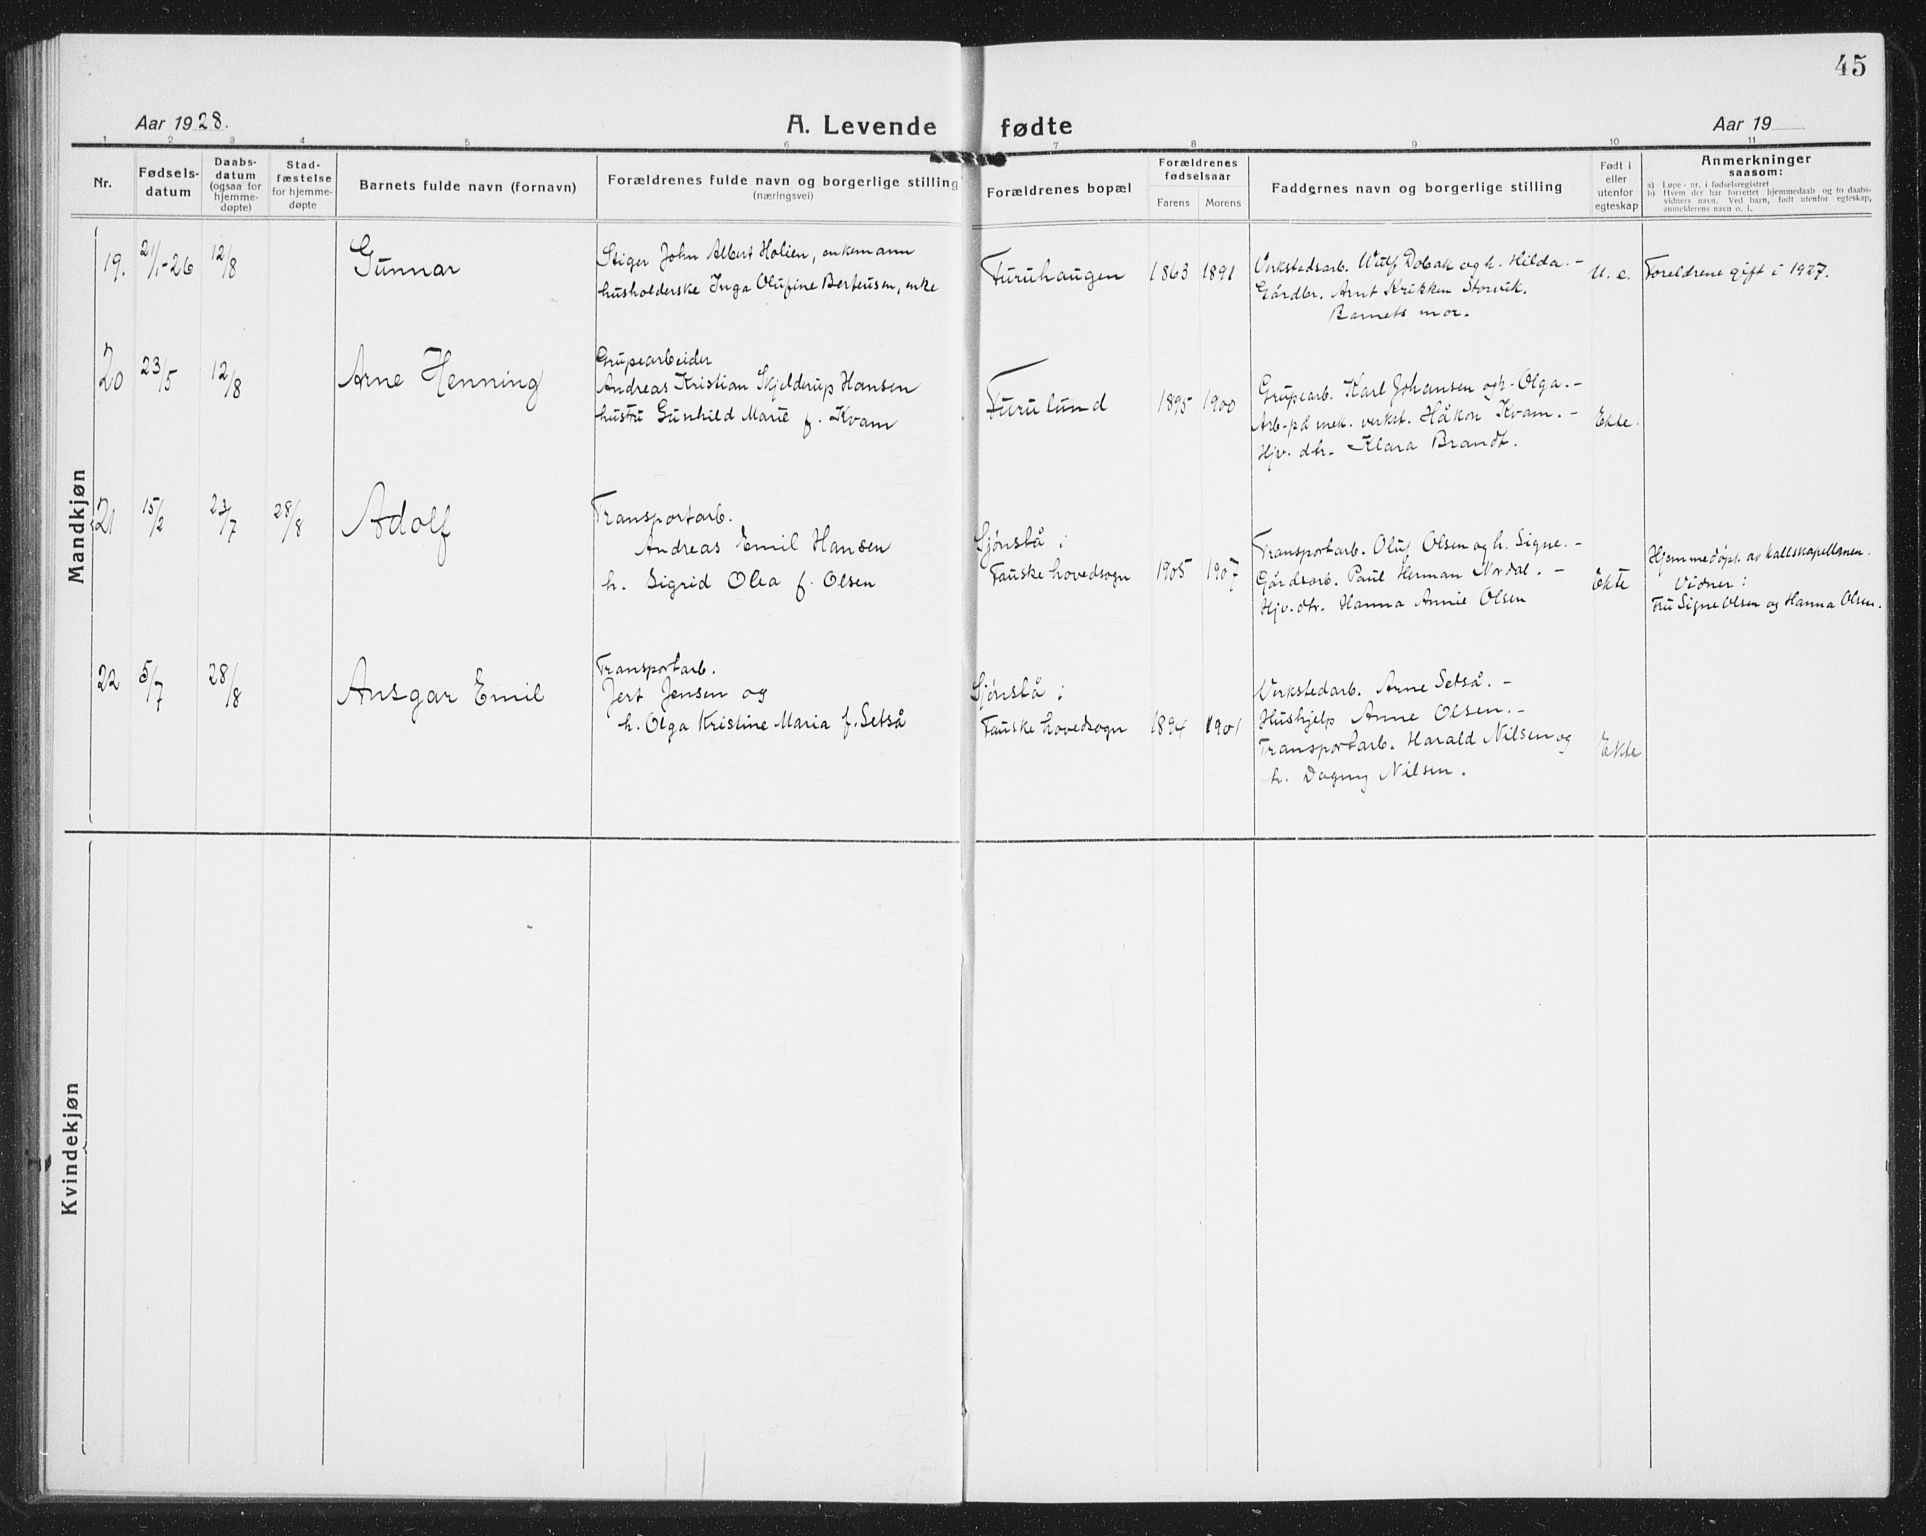 45
Aar 1928.
A. Levende fødte
Aar 19
1 2 3 4 5 6 7 8 9 10 11
Nr.
Fødsels-
datum
Daabs-
datum
(ogsaa for
hjemme-
døpte)
Stad-
fæstelse
for hjemme-
døpte
Barnets fulde navn (fornavn)
Forældrenes fulde navn og borgerlige stilling
(næringsvei)
Forældrenes bopæl
Forældrenes
fødselsaar
Farens Morens
Faddernes navn og borgerlige stilling
Født i
eller
utenfor
egteskap
Anmerkninger
saasom:
a) Løpe-nr. i fødselsregistret
b) Hvem der har forrettet hjemmedaab og to daabs-
vidners navn. Ved barn, født utenfor egteskap,
anmelderens navn o. l.
Mandkjøn
19.
21/1-26
12/8
Gunnar
Stiger John Albert Holien, enkemann
husholderske Inga Olufine Berteusen, enke
Furuhaugen
1863 1891
Verkstedsarb. Wulf Dobak og h. Hilda. -
Gårdbr. Arnt Krikken Storvik.
Barnets mor.
U. e.
Foreldrene gift i 1927.
20
23/5
12/8
Arne Henning
Grupearbeider
Andreas Kristian Skjelderup Hansen
hustru Gunhild Marie f. Kvam
Furulund
1895 1900
Grupearb. Karl Johansen og h. Olga. -
Arb. på mek. verkst. Håkon Kvam. -
Hjv. dtr. Klara Brandt.
Ekte.
21
15/2
23/7
28/8
Adolf
Transportarb.
Andreas Emil Hansen
h. Sigrid Olea f. Olsen
Sjønstå i
Fauske hovedsogn
1905 1907
Transportarb. Oluf Olsen og h. Signe. -
Gårdsarb. Paul Herman Nordal. -
Hjv. dtr. Hanna Annie Olsen
Ekte
Hjemmedøpt av kallskapellanen.
Vidner:
Fru Signe Olsen og Hanna Olsen.
22
5/7
28/8
Ansgar Emil
Transportarb.
Jert Jensen og
h. Olga Kristine Maria f. Setså
Sjønstå i
Fauske hovedsogn
1894 1901
Verkstedarb. Arne Setså. -
Hushjelp Anne Olsen. -
Transportarb. Harald Nilsen og
h. Dagny Nilsen.
Ekte
Kvindekjøn